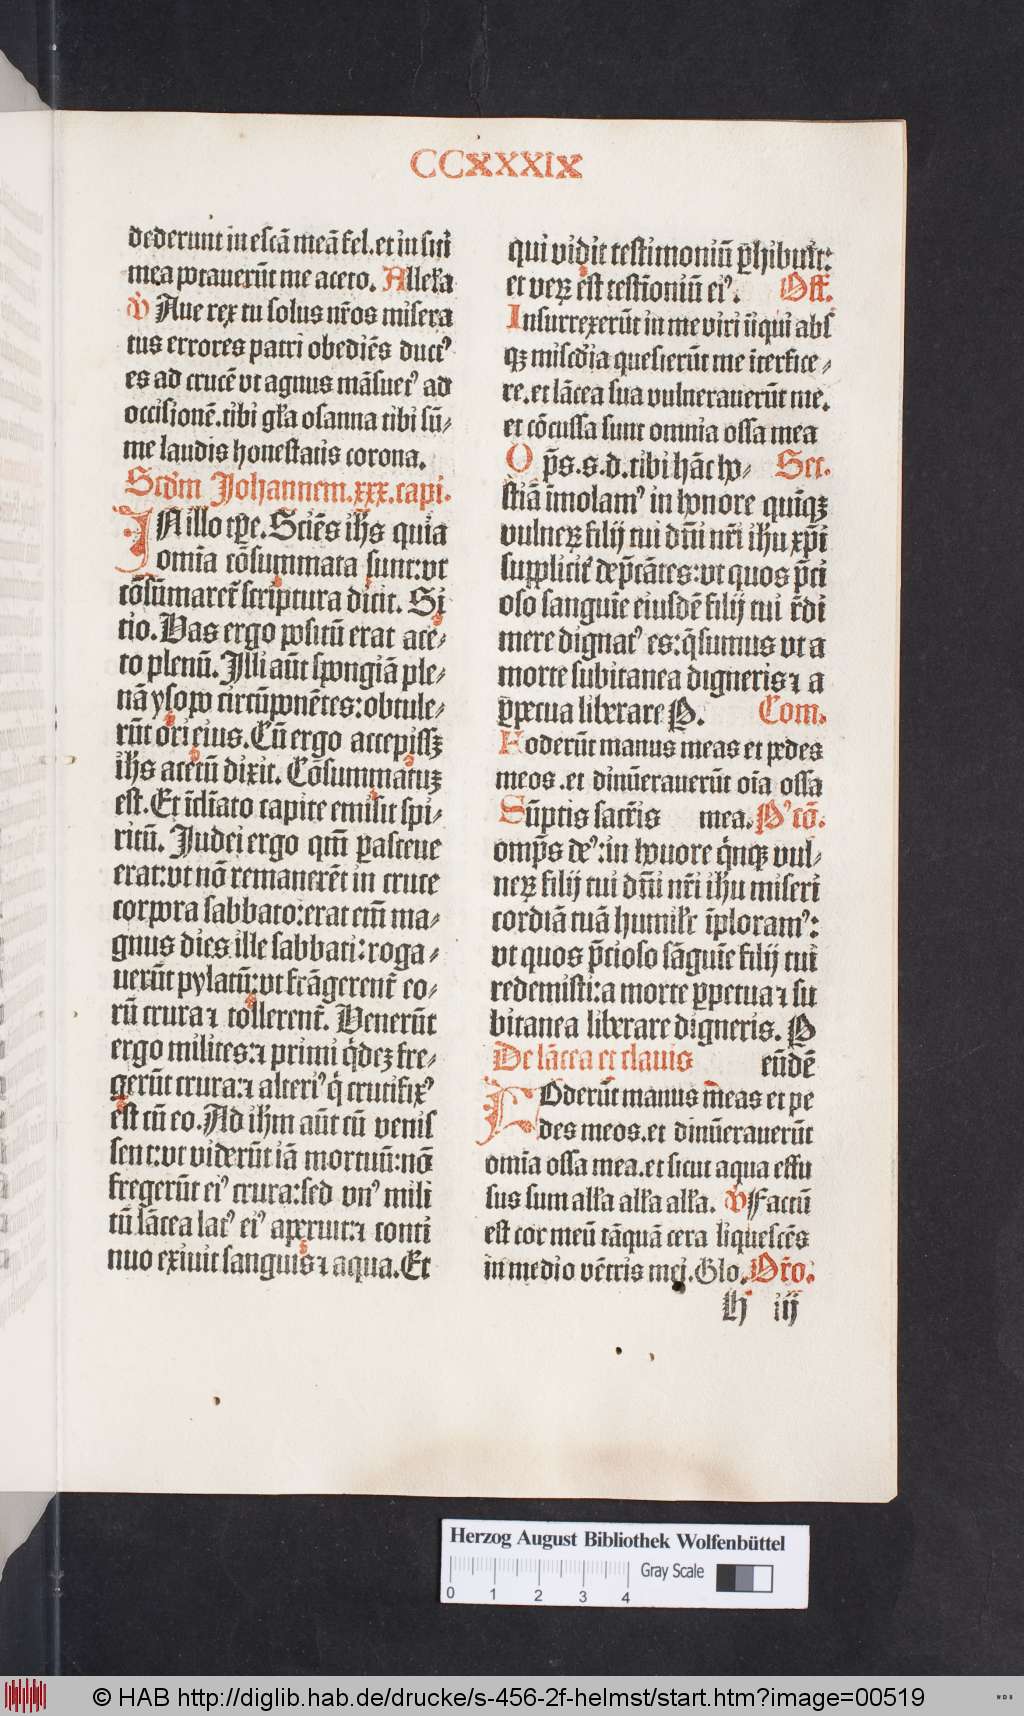 CCXXXIX
dederunt in escā meā fel. et in siti
mea potauerūt me aceto. Alleɫa
℣ Aue rex tu solus nr̄os misera
tus errores patri obediēs ductꝰ
es ad crucē vt agnus māsuetꝰ ad
occisionē. tibi gɫa osanna tibi sū⸗
me laudis honestatis corona.
Scd̄m Johannem. xxx. capi.
IN illo tp̄e. Sciēs ihs̄ quia
omīa cōsummata sunt: vt
cōsūmaret̄ scriptura dicit. Si
tio. Vas ergo positū erat ace⸗
to plenū. Illi aūt spongiā ple⸗
nā ysopo circūponētes: obtule⸗
rūt ori eius. Cū ergo accepissꝫ
ihs̄ acetū dixit. Cōsummatuꝫ
est. Et īclīato capite emisit spi⸗
ritū. Judei ergo qm̄ ꝑasceue
erat: vt nō remanerēt in cruce
corpora sabbato: erat em̄ ma⸗
gnus dies ille sabbati: roga⸗
uerūt pylatū: vt frāgerent̄ eo⸗
rū crura ⁊ tollerent̄. Venerūt
ergo milites: ⁊ primi q̇deꝫ fre⸗
gerūt crura: ⁊ alteriꝰ q̇ crucifixꝰ
est cū eo. Ad ihm̄ aūt cū venis
sent: vt viderūt iā mortuū: nō
fregerūt eiꝰ crura: sed vnꝰ mili
tū lācea latꝰ eiꝰ aperuit: ⁊ conti
nuo exiuit sanguis ⁊ aqua. Et
qui vidit testimoniū ꝑhibuit:
et veꝝ est testīoniū eiꝰ. Off.
Insurrexerūt in me viri īiqui abs
qꝫ mīscd̄ia quesierūt me īterfice⸗
re. et lācea sua vulnerauerūt me.
et cōcussa sunt omnia ossa mea
O p̄s. s. d. tibi hāc ho⸗ Sec.
stiā īmolamꝰ in honore quīqꝫ
vulneꝝ filij tui dn̄i nr̄i ihu xp̄i
suppliciɫ dep̄cātes: vt quos p̄ci
oso sanguīe eiusdē filij tui r̄di
mere dignatꝰ es: q̄sumus vt a
morte subitanea digneris ⁊ a
ꝑpetua liberare P. Com.
Foderūt manus meas et pedes
meos. et dinūerauerūt oīa ossa
Sūptis sacr̄is mea. Pꝰcō.
omp̄s deꝰ: in honore q̇nqꝫ vul⸗
neꝝ filij tui dn̄i nr̄i ihu miseri
cordiā tuā humiɫr īploramꝰ:
vt quos p̄cioso sāguīe filij tui
redemisti: a morte ꝑpetua ⁊ su
bitanea liberare digneris. P
De lācea et clauis eūdē
FOderūt manus meas et pe
des meos. et dinūerauerūt
omīa ossa mea. et sicut aqua effu
sus sum aɫɫa aɫɫa aɫɫa. ℣ Factū
est cor meū tāquā cera liquescēs
in medio vētris mei. Glo. Or̄o.
H iij
Herzog August Bibliothek Wolfenbüttel
0 1 2 3 4 Gray Scale
© HAB http://diglib.hab.de/drucke/s-456-2f-helmst/start.htm?image=00519